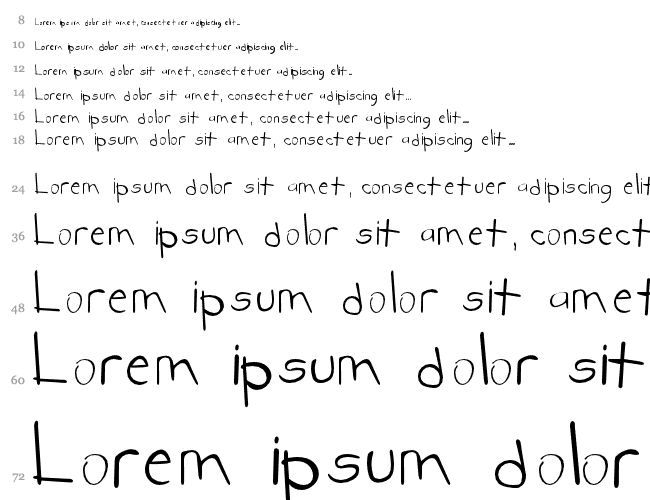 8 Lorem ipsum dolor sit amet, consectetuer adipiscing elit...
10 Lorem ipsum dolor sit amet, consectetuer adipiscing elit...
12 Lorem ipsum dolor sit amet, consectetuer adipiscing elit...
14 Lorem ipsum dolor sit amet, consectetuer adipiscing elit...
16 Lorem ipsum dolor sit amet, consectetuer adipiscing elit...
18 Lorem ipsum dolor sit amet, consectetuer adipiscing elit...
24 Lorem ipsum dolor sit amet, consectetuer adipiscing elit
36 Lorem ipsum dolor sit amet, consect
48 Lorem ipsum dolor sit amet
60 Lorem ipsum dolor sit
72 Lorem ipsum dolor